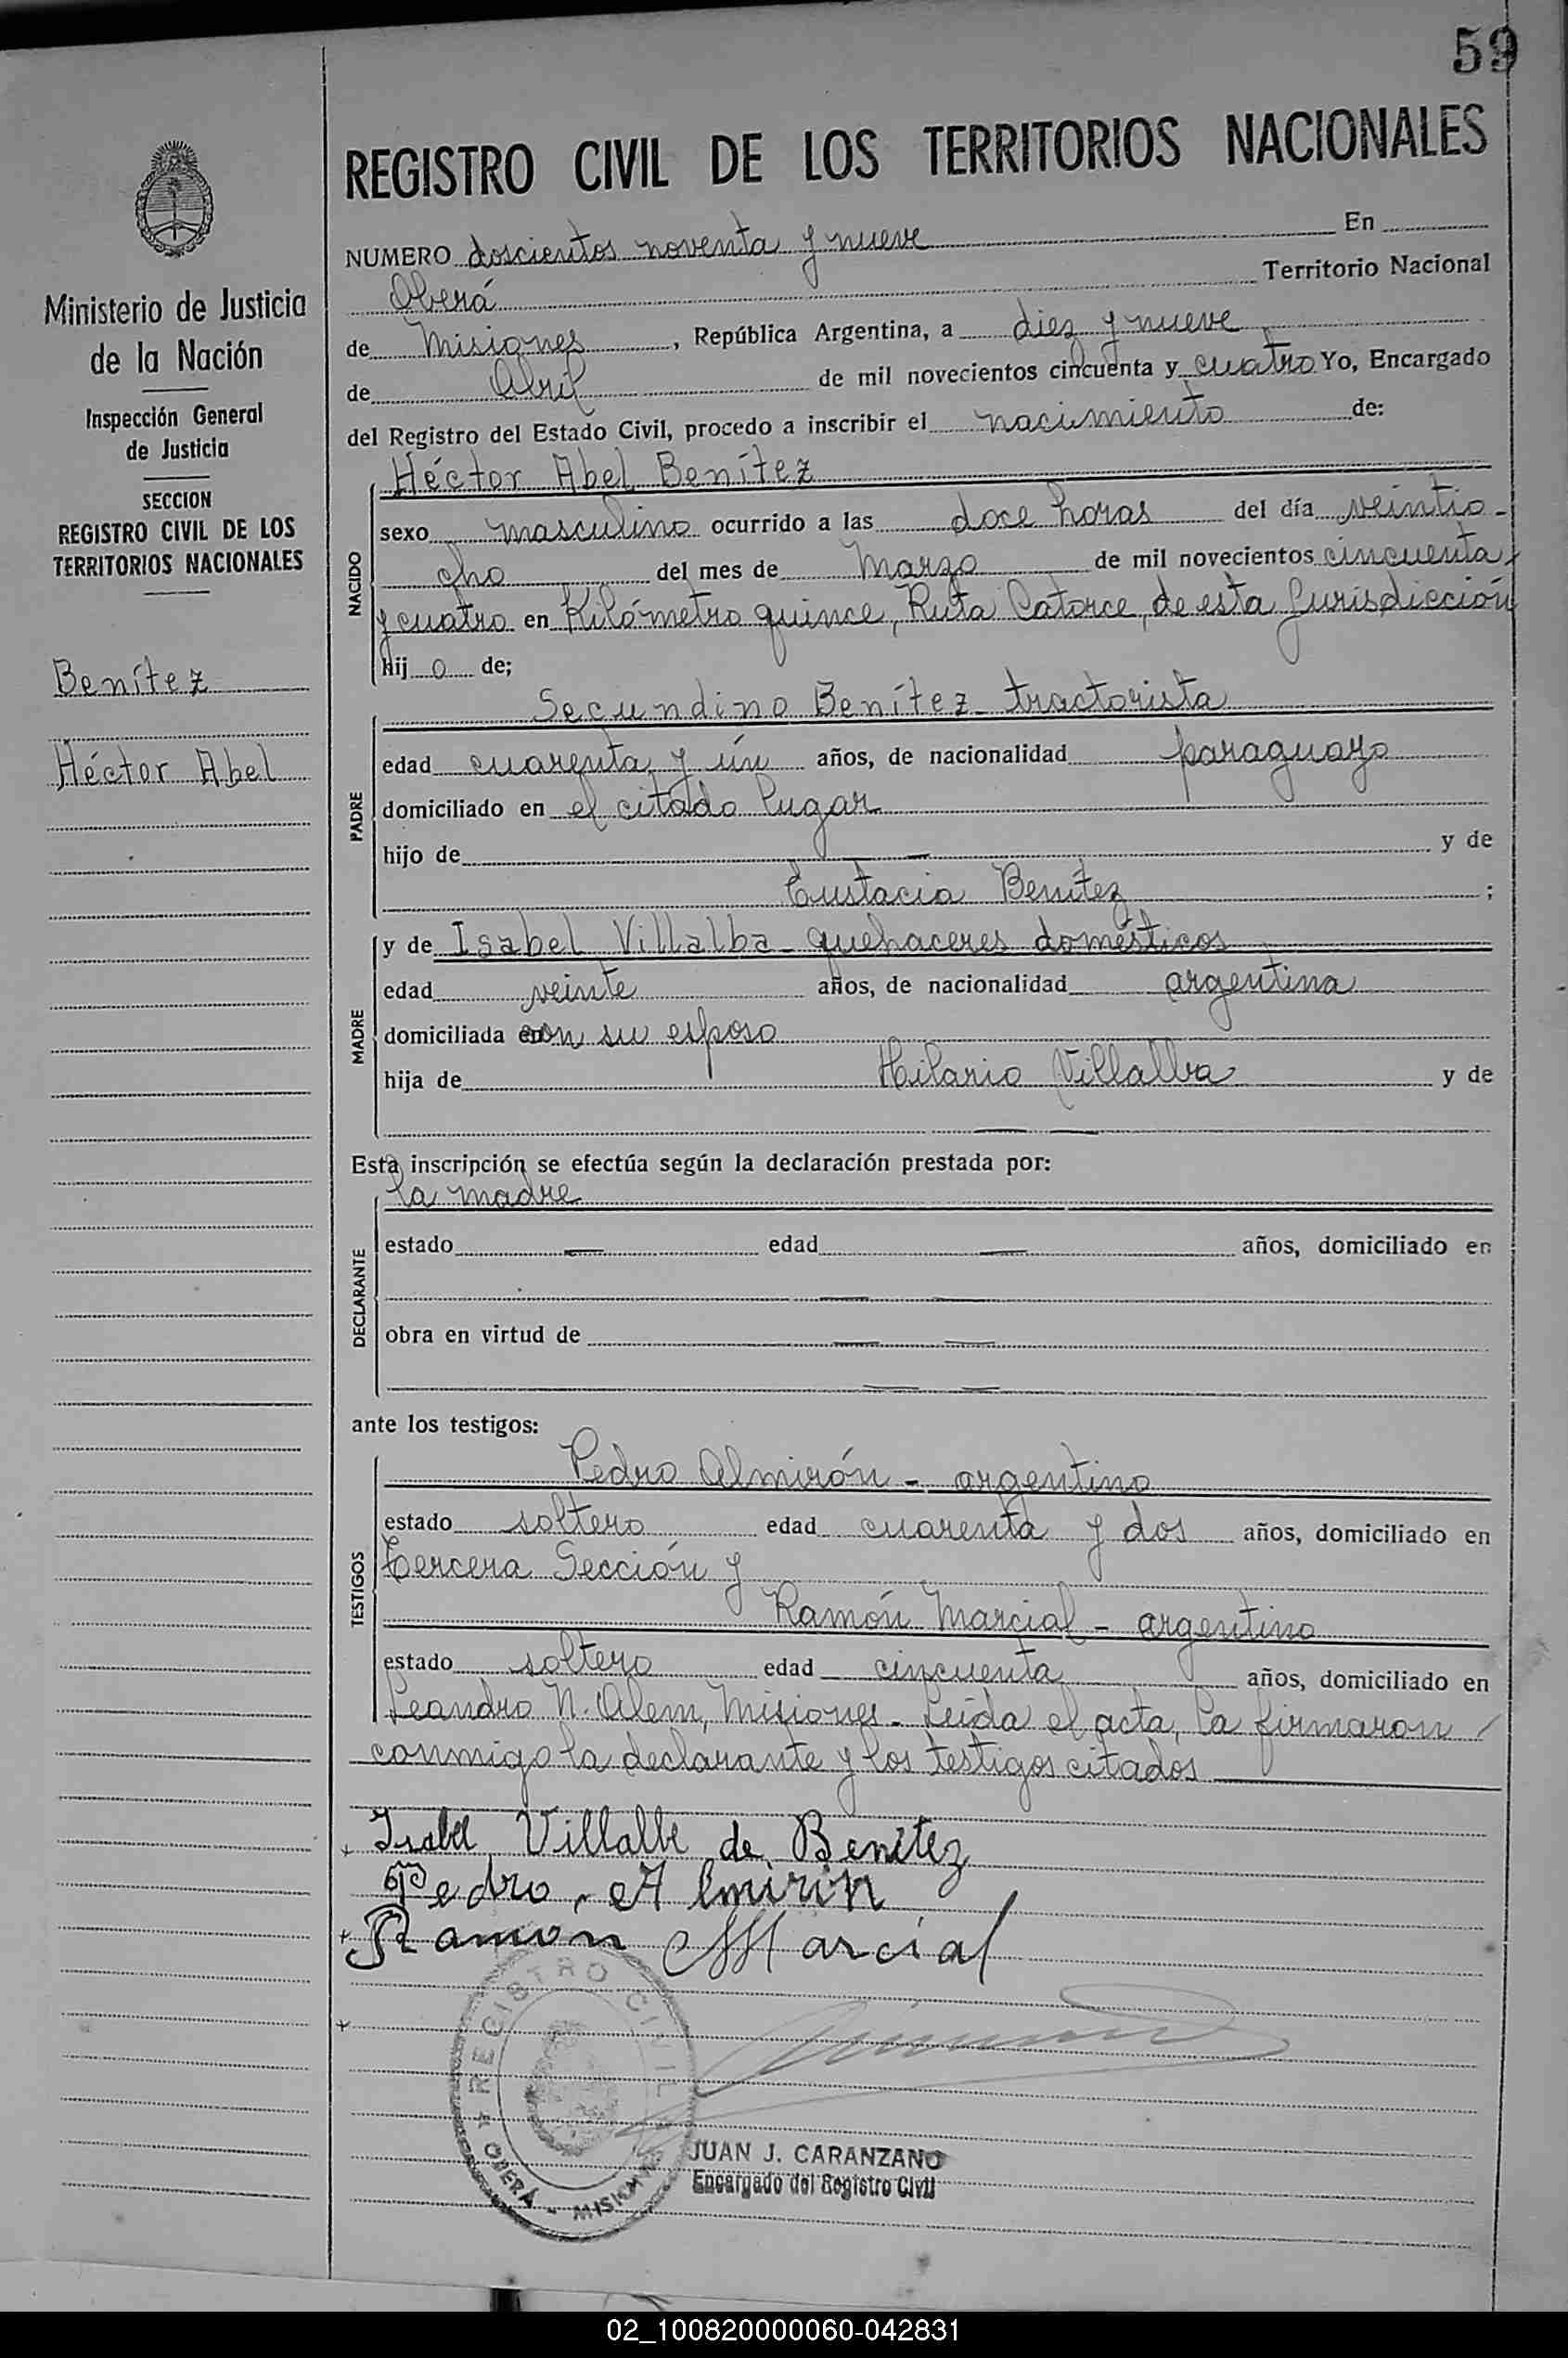 59
REGISTRO CIVIL DE LOS TERRITORIOS NACIONALES
Ministerio de Justicia
de la Nación
Inspección General
de Justicia
SECCION
REGISTRO CIVIL DE LOS
TERRITORIOS NACIONALES
Benítez
Héctor Abel
NUMERO doscientos noventa y nueve En
Oberá Territorio Nacional
de Misiones, República Argentina, a diez y nueve
de Abril de mil novecientos cincuenta y cuatro Yo, Encargado
del Registro del Estado Civil, procedo a inscribir el nacimiento de:
NACIDO
Héctor Abel Benítez
sexo masculino ocurrido a las doce horas del día veintio-
cho del mes de Marzo de mil novecientos cincuenta
y cuatro en Kilómetro quince, Ruta Catorce, de esta Jurisdicción
hij o de;
PADRE
Secundino Benítez - tractorista
edad cuarenta y ún años, de nacionalidad paraguayo
domiciliado en el citado lugar
hijo de — y de
Eustacia Benítez ;
MADRE
y de Isabel Villalba - quehaceres domésticos
edad veinte años, de nacionalidad argentina
domiciliada en con su esposo
hija de Hilario Villalba y de
— —
Esta inscripción se efectúa según la declaración prestada por:
DECLARANTE
la madre
estado — edad — años, domiciliado en
— —
obra en virtud de — —
— —
ante los testigos:
TESTIGOS
Pedro Almirón - argentino
estado soltero edad cuarenta y dos años, domiciliado en
tercera Sección y
Ramón Marcial - argentino
estado soltero edad cincuenta años, domiciliado en
Leandro N. Alem, Misiones - Leída el acta, la firmaron
conmigo la declarante y los testigos citados
Isabel Villalbe de Benitez
Pedro, Almirin
Ramon Marcial
REGISTRO CIVIL
OBERÁ - MISIONES
JUAN J. CARANZANO
Encargado del Registro Civil
02_100820000060-042831